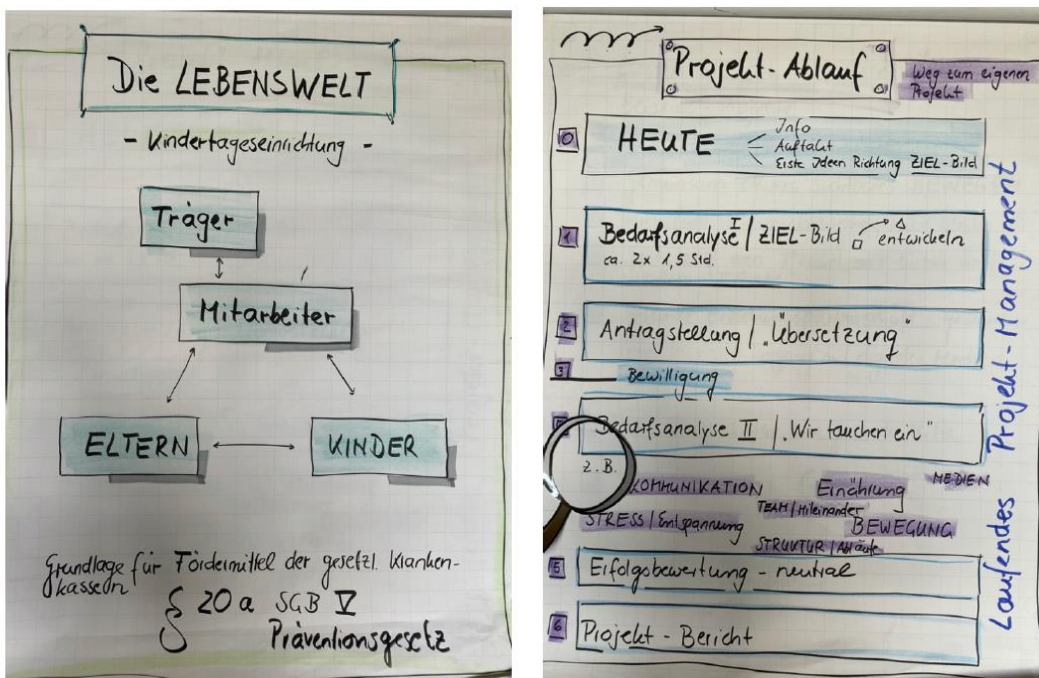 Die LEBENSWELT
- Kindertageseinrichtung -
Träger
Mitarbeiter
ELTERN
KINDER
Grundlage für Fördermittel der gesetzl. Kranken-
kassen
§ 20 a SGB V
Präventionsgesetz
Projekt-Ablauf
Weg zum eigenen
Projekt
0
HEUTE
Info
Auftakt
Erste Ideen Richtung ZIEL-Bild
1
Bedarfsanalyse I / ZIEL-Bild entwickeln
ca. 2x 1,5 Std.
2
Antragstellung / „Übersetzung"
3
Bewilligung
Bedarfsanalyse II / „Wir tauchen ein"
z.B.
KOMMUNIKATION
Ernährung
MEDIEN
STRESS / Entspannung
TEAM / Miteinander
BEWEGUNG
STRUKTUR / Abläufe
5
Erfolgsbewertung - neutral
6
Projekt - Bericht
Laufendes Projekt-Management